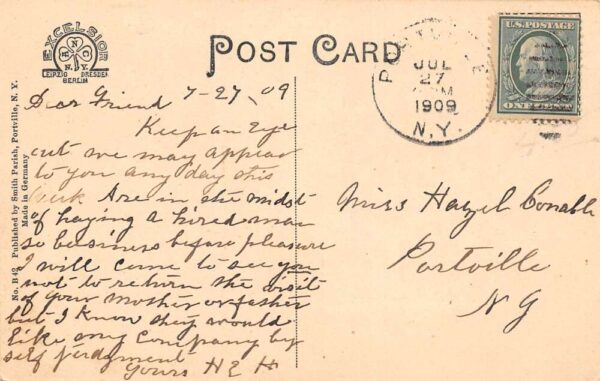 EXCELSIOR
N.Y.
LEIPZIG DRESDEN
BERLIN
POST CARD
U.S. POSTAGE
ONE CENT
JUL
27
M
1909
N.Y.
No. B 42 Published by Smith Parish, Portville, N. Y.
Made in Germany
Dear Friend 7-27-09
Keep an Eye
out we may appear
to you any day this
week Are in the midst
of haying a hired man
so business before pleasure
I will come to see you
not to return the visit
of your mother or father
but I know they would
like any company by
self judgment
Yours H E H
Miss Hazel Conable
Portville
NY